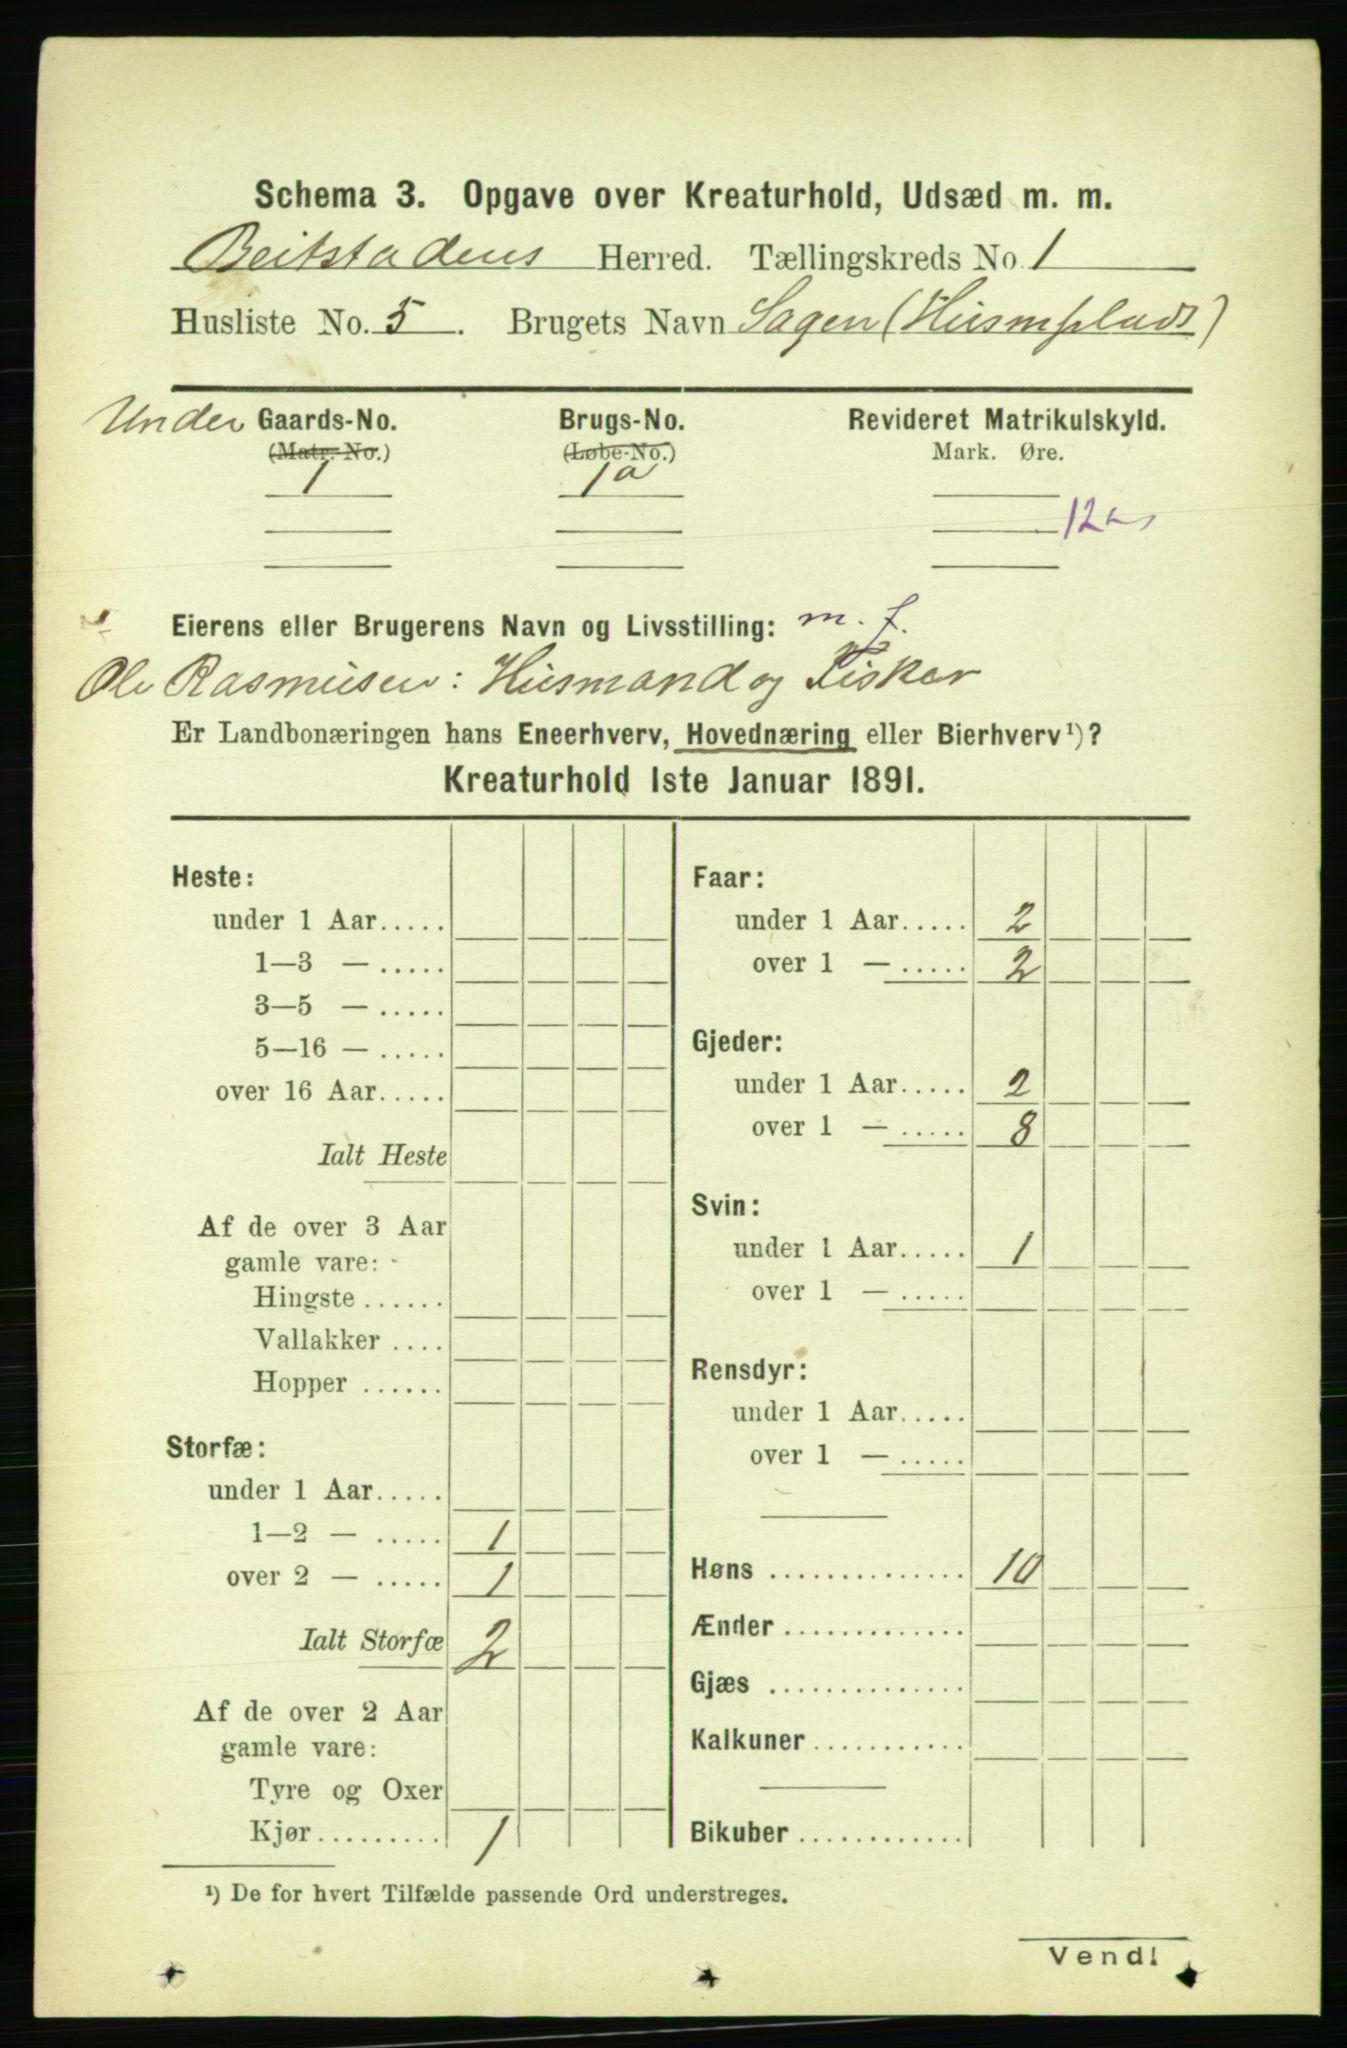 Schema 3. Opgave over Kreaturhold, Udsæd m. m.
Beitstadens Herred. Tællingskreds No. 1
Husliste No. 5. Brugets Navn Sagen (Husmplads)
Under Gaards-No. Brugs-No. Revideret Matrikulskyld.
(Matr.-No.) (Løbe-No.) Mark. Øre.
1 1a
Eierens eller Brugerens Navn og Livsstilling: m. f.
Ole Rasmusen: Husmand og Fisker
Er Landbonæringen hans Eneerhverv, Hovednæring eller Bierhverv¹)?
Kreaturhold 1ste Januar 1891.
Heste:
under 1 Aar.....
1—3 — .....
3—5 — .....
5—16 — .....
over 16 Aar.....
Ialt Heste
Af de over 3 Aar
gamle vare:
Hingste ......
Vallakker ....
Hopper ......
Storfæ:
under 1 Aar.....
1—2 — ..... 1
over 2 — ..... 1
Ialt Storfæ 2
Af de over 2 Aar
gamle vare:
Tyre og Oxer
Kjør......... 1
Faar:
under 1 Aar..... 2
over 1 — ..... 2
Gjeder:
under 1 Aar..... 2
over 1 — ..... 8
Svin:
under 1 Aar..... 1
over 1 — .....
Rensdyr:
under 1 Aar.....
over 1 — .....
Høns .............. 10
Ænder .............
Gjæs ..............
Kalkuner ...........
Bikuber ............
¹) De for hvert Tilfælde passende Ord understreges.
Vend!